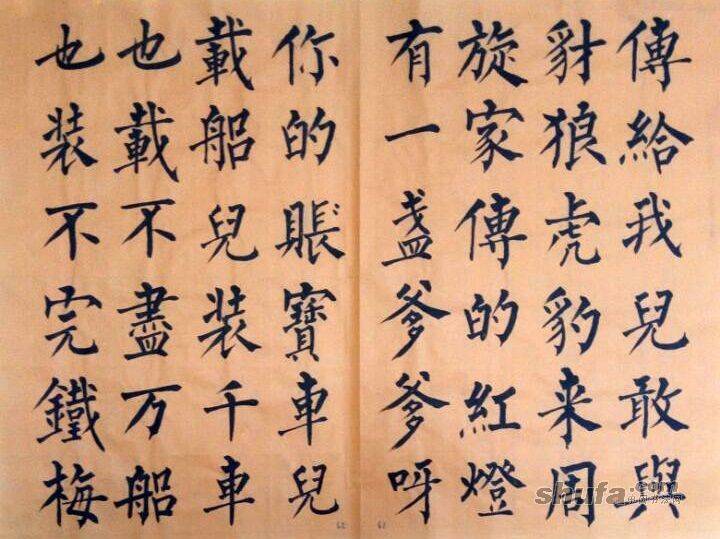 傳給我兒敢與
豺狼虎豹来周
旋家傳的紅燈
有一盞爹爹呀
你的賬寶車兒
載船兒装千車
也載不盡万船
也装不完鐵梅
61
62
shufa.com